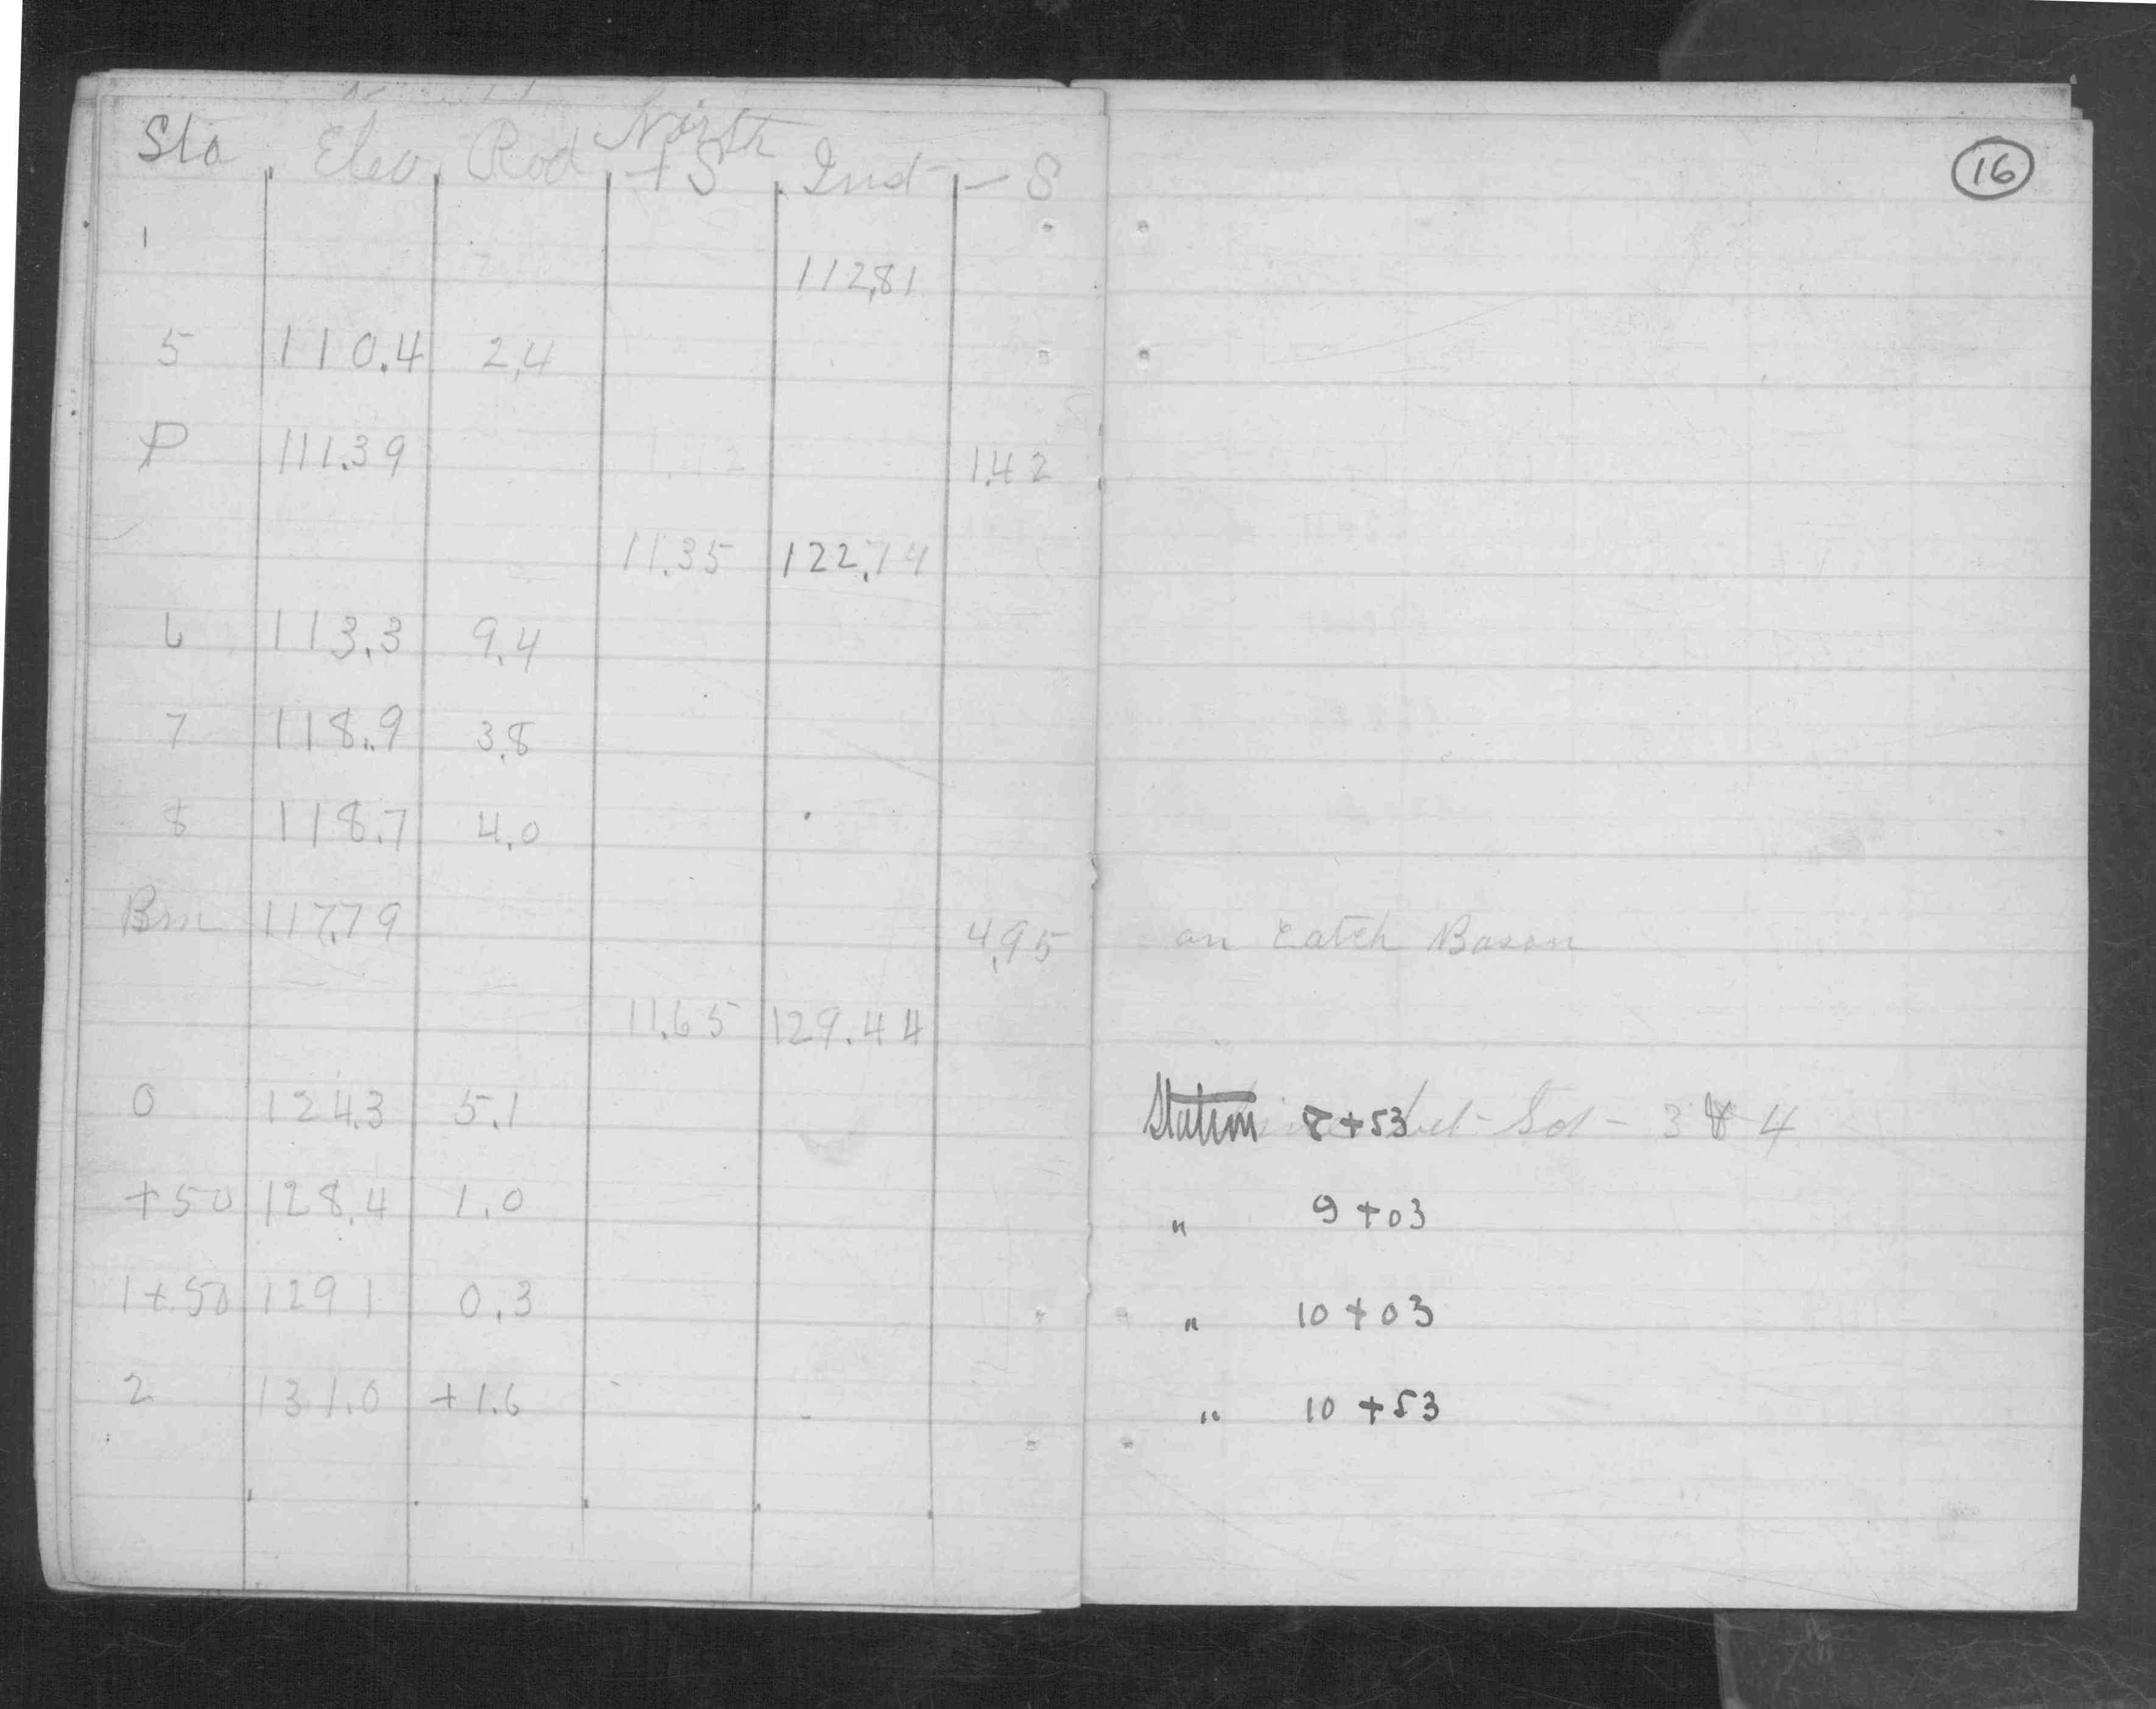 North
Sta Elev. Rod +S Ind - S
1
112.81
5 110.4 2.4
P 111.39 1.42
11.35 122.74
6 113.3 9.4
7 118.9 3.8
8 118.7 4.0
Bm 117.79 4.95
11.65 129.44
0 124.3 5.1
+50 128.4 1.0
1+50 129 1 0.3
2 131.0 +1.6
16
on Catch Bason
Station 8+53 Sd - 3 & 4
" 9+03
" 10+03
" 10+53